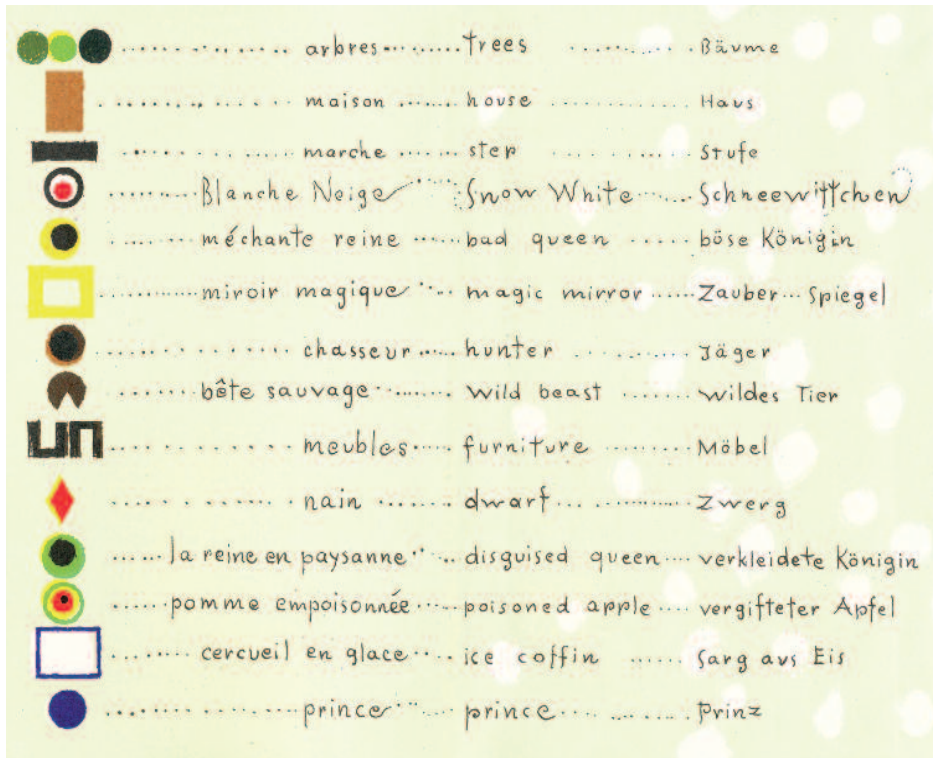 arbres trees Bäume
maison house Haus
marche step Stufe
Blanche Neige Snow White Schneewittchen
méchante reine bad queen böse Königin
miroir magique magic mirror Zauber Spiegel
chasseur hunter Jäger
bête sauvage wild beast wildes Tier
meubles furniture Möbel
nain dwarf Zwerg
la reine en paysanne disguised queen verkleidete Königin
pomme empoisonnée poisoned apple vergifteter Apfel
cercueil en glace ice coffin Sarg aus Eis
prince prince Prinz